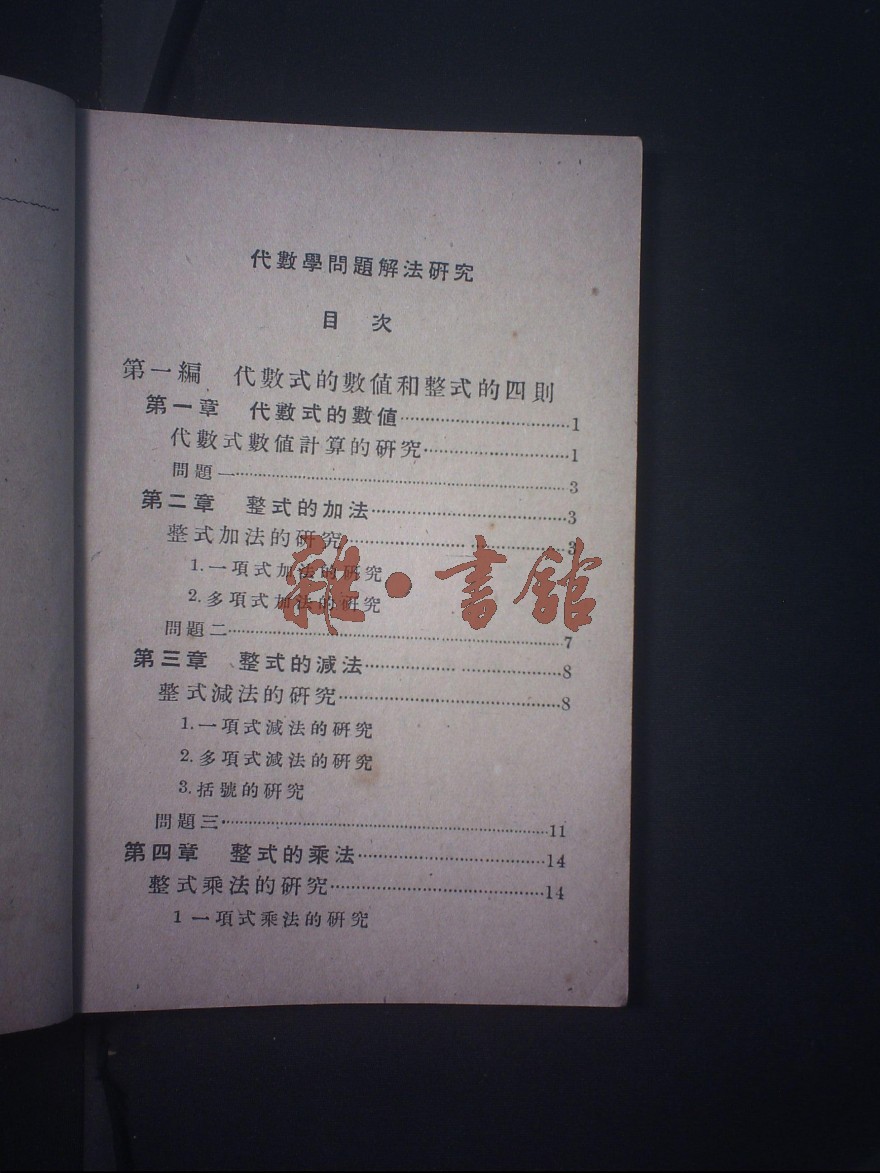 代數學問題解法研究
目 次
第一編 代數式的數値和整式的四則
第一章 代數式的數値……………………………1
代數式數値計算的研究……………………………1
問題一……………………………3
第二章 整式的加法……………………………3
整式加法的研究……………………………3
1.一項式加法的研究
2.多項式加法的研究
雜·書舘
問題二……………………………7
第三章 整式的減法……………………………8
整式減法的研究……………………………8
1.一項式減法的研究
2.多項式減法的研究
3.括號的研究
問題三……………………………11
第四章 整式的乘法……………………………14
整式乘法的研究……………………………14
1 一項式乘法的研究